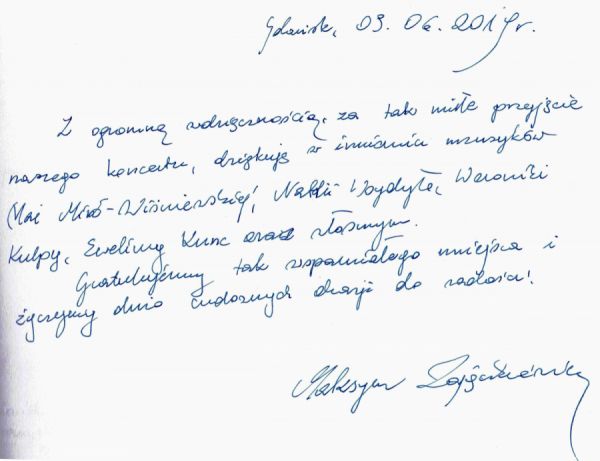 Gdańsk, 03.06.2017r.
Z ogromną wdzięcznością, za tak miłe przyjęcie
naszego koncertu, dziękuję w imieniu muzyków
(Mai Miró-Wiśniewskiej, Natalii Wojdyle, Weroniki
Kulpy, Eweliny Kunc oraz własnym.
Gratulujemy tak wspaniałego miejsca i
życzymy dużo cudownych okazji do radości!
Maksym